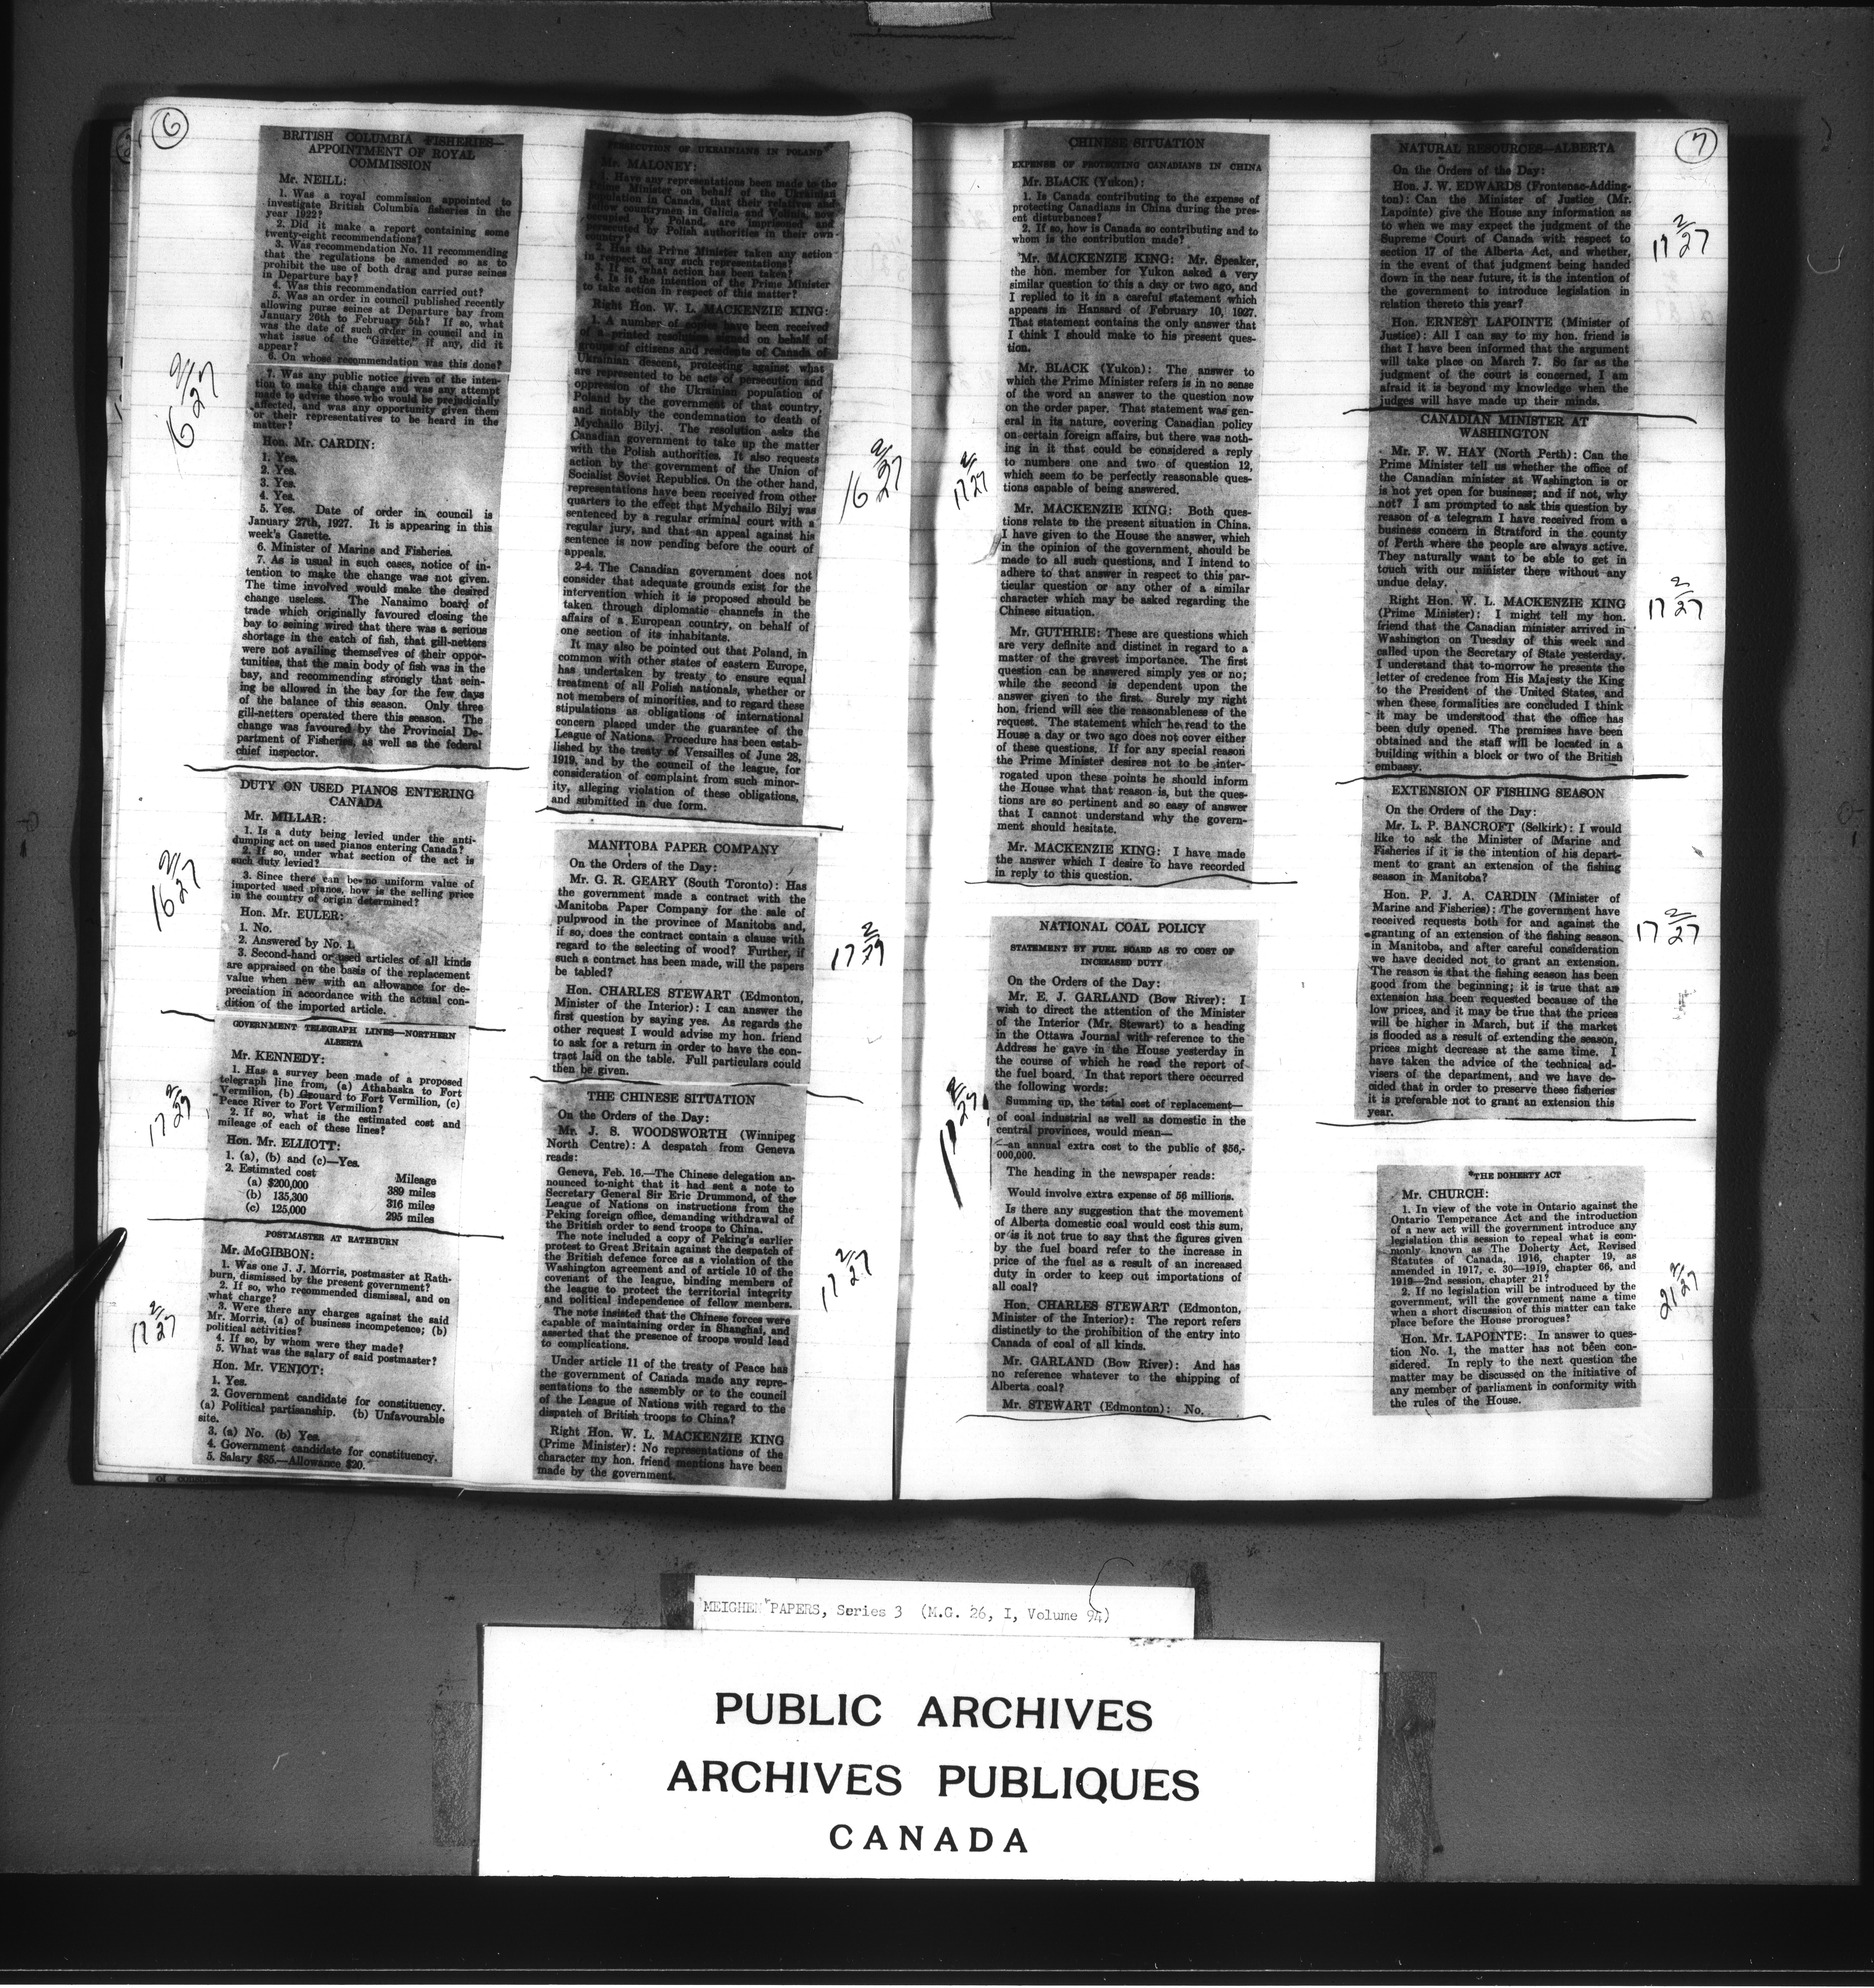 6
BRITISH COLUMBIA FISHERIES—
APPOINTMENT OF ROYAL
COMMISSION
Mr. NEILL:
1. Was a royal commission appointed to
investigate British Columbia fisheries in the
year 1922?
2. Did it make a report containing some
twenty-eight recommendations?
3. Was recommendation No. 11 recommending
that the regulations be amended so as to
prohibit the use of both drag and purse seines
in Departure bay?
4. Was this recommendation carried out?
5. Was an order in council published recently
allowing purse seines at Departure bay from
January 26th to February 5th? If so, what
was the date of such order in council and in
what issue of the "Gazette," if any, did it
appear?
6. On whose recommendation was this done?
7. Was any public notice given of the inten-
tion to make this change and was any attempt
made to advise those who would be prejudicially
affected, and was any opportunity given them
or their representatives to be heard in the
matter?
Hon. Mr. CARDIN:
1. Yes.
2. Yes.
3. Yes.
4. Yes.
5. Yes. Date of order in council is
January 27th, 1927. It is appearing in this
week's Gazette.
6. Minister of Marine and Fisheries.
7. As is usual in such cases, notice of in-
tention to make the change was not given.
The time involved would make the desired
change useless. The Nanaimo board of
trade which originally favoured closing the
bay to seining wired that there was a serious
shortage in the catch of fish, that gill-netters
were not availing themselves of their oppor-
tunities, that the main body of fish was in the
bay, and recommending strongly that sein-
ing be allowed in the bay for the few days
of the balance of this season. Only three
gill-netters operated there this season. The
change was favoured by the Provincial De-
partment of Fisheries, as well as the federal
chief inspector.
16 2/27
DUTY ON USED PIANOS ENTERING
CANADA
Mr. MILLAR:
1. Is a duty being levied under the anti-
dumping act on used pianos entering Canada?
2. If so, under what section of the act is
such duty levied?
3. Since there can be no uniform value of
imported used pianos, how is the selling price
in the country of origin determined?
Hon. Mr. EULER:
1. No.
2. Answered by No. 1.
3. Second-hand or used articles of all kinds
are appraised on the basis of the replacement
value when new with an allowance for de-
preciation in accordance with the actual con-
dition of the imported article.
16 2/27
GOVERNMENT TELEGRAPH LINES—NORTHERN
ALBERTA
Mr. KENNEDY:
1. Has a survey been made of a proposed
telegraph line from, (a) Athabaska to Fort
Vermilion, (b) Grouard to Fort Vermilion, (c)
Peace River to Fort Vermilion?
2. If so, what is the estimated cost and
mileage of each of these lines?
Hon. Mr. ELLIOTT:
1. (a), (b) and (c)—Yes.
2. Estimated cost Mileage
(a) $200,000 389 miles
(b) 135,300 316 miles
(c) 125,000 295 miles
POSTMASTER AT RATHBURN
Mr. McGIBBON:
1. Was one J. J. Morris, postmaster at Rath-
burn, dismissed by the present government?
2. If so, who recommended dismissal, and on
what charge?
3. Were there any charges against the said
Mr. Morris, (a) of business incompetence; (b)
political activities?
4. If so, by whom were they made?
5. What was the salary of said postmaster?
Hon. Mr. VENIOT:
1. Yes.
2. Government candidate for constituency.
(a) Political partisanship. (b) Unfavourable
site.
3. (a) No. (b) Yes.
4. Government candidate for constituency.
5. Salary $85.—Allowance $20.
17 2/27
PERSECUTION OF UKRAINIANS IN POLAND
Mr. MALONEY:
1. Have any representations been made to the
Prime Minister on behalf of the Ukrainian
population in Canada, that their relatives and
fellow countrymen in Galicia and Volinia, now
occupied by Poland, are imprisoned and
persecuted by Polish authorities in their own
country?
2. Has the Prime Minister taken any action
in respect of any such representations?
3. If so, what action has been taken?
4. Is it the intention of the Prime Minister
to take action in respect of this matter?
Right Hon. W. L. MACKENZIE KING:
1. A number of copies have been received
of a printed resolution signed on behalf of
groups of citizens and residents of Canada of
Ukrainian descent, protesting against what
are represented to be acts of persecution and
oppression of the Ukrainian population of
Poland by the government of that country,
and notably the condemnation to death of
Mychailo Bilyj. The resolution asks the
Canadian government to take up the matter
with the Polish authorities. It also requests
action by the government of the Union of
Socialist Soviet Republics. On the other hand,
representations have been received from other
quarters to the effect that Mychailo Bilyj was
sentenced by a regular criminal court with a
regular jury, and that an appeal against his
sentence is now pending before the court of
appeals.
2-4. The Canadian government does not
consider that adequate grounds exist for the
intervention which it is proposed should be
taken through diplomatic channels in the
affairs of a European country, on behalf of
one section of its inhabitants.
It may also be pointed out that Poland, in
common with other states of eastern Europe,
has undertaken by treaty to ensure equal
treatment of all Polish nationals, whether or
not members of minorities, and to regard these
stipulations as obligations of international
concern placed under the guarantee of the
League of Nations. Procedure has been estab-
lished by the treaty of Versailles of June 28,
1919, and by the council of the league, for
consideration of complaint from such minor-
ity, alleging violation of these obligations,
and submitted in due form.
16 2/27
MANITOBA PAPER COMPANY
On the Orders of the Day:
Mr. G. R. GEARY (South Toronto): Has
the government made a contract with the
Manitoba Paper Company for the sale of
pulpwood in the province of Manitoba and,
if so, does the contract contain a clause with
regard to the selecting of wood? Further, if
such a contract has been made, will the papers
be tabled?
Hon. CHARLES STEWART (Edmonton,
Minister of the Interior): I can answer the
first question by saying yes. As regards the
other request I would advise my hon. friend
to ask for a return in order to have the con-
tract laid on the table. Full particulars could
then be given.
THE CHINESE SITUATION
On the Orders of the Day:
Mr. J. S. WOODSWORTH (Winnipeg
North Centre): A despatch from Geneva
reads:
Geneva, Feb. 16.—The Chinese delegation an-
nounced to-night that it had sent a note to
Secretary General Sir Eric Drummond, of the
League of Nations on instructions from the
Peking foreign office, demanding withdrawal of
the British order to send troops to China.
The note included a copy of Peking's earlier
protest to Great Britain against the despatch of
the British defence force as a violation of the
Washington agreement and of article 10 of the
covenant of the league, binding members of
the league to protect the territorial integrity
and political independence of fellow members.
The note insisted that the Chinese forces were
capable of maintaining order in Shanghai, and
asserted that the presence of troops would lead
to complications.
Under article 11 of the treaty of Peace has
the government of Canada made any repre-
sentations to the assembly or to the council
of the League of Nations with regard to the
dispatch of British troops to China?
Right Hon. W. L. MACKENZIE KING
(Prime Minister): No representations of the
character my hon. friend mentions have been
made by the government.
17 2/27
CHINESE SITUATION
EXPENSE OF PROTECTING CANADIANS IN CHINA
Mr. BLACK (Yukon):
1. Is Canada contributing to the expense of
protecting Canadians in China during the pres-
ent disturbances?
2. If so, how is Canada so contributing and to
whom is the contribution made?
Mr. MACKENZIE KING: Mr. Speaker,
the hon. member for Yukon asked a very
similar question to this a day or two ago, and
I replied to it in a careful statement which
appears in Hansard of February 10, 1927.
That statement contains the only answer that
I think I should make to his present ques-
tion.
Mr. BLACK (Yukon): The answer to
which the Prime Minister refers is in no sense
of the word an answer to the question now
on the order paper. That statement was gen-
eral in its nature, covering Canadian policy
on certain foreign affairs, but there was noth-
ing in it that could be considered a reply
to numbers one and two of question 12,
which seem to be perfectly reasonable ques-
tions capable of being answered.
Mr. MACKENZIE KING: Both ques-
tions relate to the present situation in China.
I have given to the House the answer, which
in the opinion of the government, should be
made to all such questions, and I intend to
adhere to that answer in respect to this par-
ticular question or any other of a similar
character which may be asked regarding the
Chinese situation.
Mr. GUTHRIE: These are questions which
are very definite and distinct in regard to a
matter of the gravest importance. The first
question can be answered simply yes or no;
while the second is dependent upon the
answer given to the first. Surely my right
hon. friend will see the reasonableness of the
request. The statement which he read to the
House a day or two ago does not cover either
of these questions. If for any special reason
the Prime Minister desires not to be inter-
rogated upon these points he should inform
the House what that reason is, but the ques-
tions are so pertinent and so easy of answer
that I cannot understand why the govern-
ment should hesitate.
Mr. MACKENZIE KING: I have made
the answer which I desire to have recorded
in reply to this question.
17 2/27
NATIONAL COAL POLICY
STATEMENT BY FUEL BOARD AS TO COST OF
INCREASED DUTY
On the Orders of the Day:
Mr. E. J. GARLAND (Bow River): I
wish to direct the attention of the Minister
of the Interior (Mr. Stewart) to a heading
in the Ottawa Journal with reference to the
Address he gave in the House yesterday in
the course of which he read the report of
the fuel board. In that report there occurred
the following words:
Summing up, the total cost of replacement—
of coal industrial as well as domestic in the
central provinces, would mean—
—an annual extra cost to the public of $56,-
000,000.
The heading in the newspaper reads:
Would involve extra expense of 56 millions.
Is there any suggestion that the movement
of Alberta domestic coal would cost this sum,
or is it not true to say that the figures given
by the fuel board refer to the increase in
price of the fuel as a result of an increased
duty in order to keep out importations of
all coal?
Hon. CHARLES STEWART (Edmonton,
Minister of the Interior): The report refers
distinctly to the prohibition of the entry into
Canada of coal of all kinds.
Mr. GARLAND (Bow River): And has
no reference whatever to the shipping of
Alberta coal?
Mr. STEWART (Edmonton): No.
7
NATURAL RESOURCES—ALBERTA
On the Orders of the Day:
Hon. J. W. EDWARDS (Frontenac-Adding-
ton): Can the Minister of Justice (Mr.
Lapointe) give the House any information as
to when we may expect the judgment of the
Supreme Court of Canada with respect to
section 17 of the Alberta Act, and whether,
in the event of that judgment being handed
down in the near future, it is the intention of
the government to introduce legislation in
relation thereto this year?
Hon. ERNEST LAPOINTE (Minister of
Justice): All I can say to my hon. friend is
that I have been informed that the argument
will take place on March 7. So far as the
judgment of the court is concerned, I am
afraid it is beyond my knowledge when the
judges will have made up their minds.
17 2/27
CANADIAN MINISTER AT
WASHINGTON
Mr. F. W. HAY (North Perth): Can the
Prime Minister tell us whether the office of
the Canadian minister at Washington is or
is not yet open for business; and if not, why
not? I am prompted to ask this question by
reason of a telegram I have received from a
business concern in Stratford in the county
of Perth where the people are always active.
They naturally want to be able to get in
touch with our minister there without any
undue delay.
Right Hon. W. L. MACKENZIE KING
(Prime Minister): I might tell my hon.
friend that the Canadian minister arrived in
Washington on Tuesday of this week and
called upon the Secretary of State yesterday.
I understand that to-morrow he presents the
letter of credence from His Majesty the King
to the President of the United States, and
when these formalities are concluded I think
it may be understood that the office has
been duly opened. The premises have been
obtained and the staff will be located in a
building within a block or two of the British
embassy.
17 2/27
EXTENSION OF FISHING SEASON
On the Orders of the Day:
Mr. L. P. BANCROFT (Selkirk): I would
like to ask the Minister of Marine and
Fisheries if it is the intention of his depart-
ment to grant an extension of the fishing
season in Manitoba?
Hon. P. J. A. CARDIN (Minister of
Marine and Fisheries): The government have
received requests both for and against the
granting of an extension of the fishing season
in Manitoba, and after careful consideration
we have decided not to grant an extension.
The reason is that the fishing season has been
good from the beginning; it is true that an
extension has been requested because of the
low prices, and it may be true that the prices
will be higher in March, but if the market
is flooded as a result of extending the season,
prices might decrease at the same time. I
have taken the advice of the technical ad-
visers of the department, and we have de-
cided that in order to preserve these fisheries
it is preferable not to grant an extension this
year.
17 2/27
*THE DOHERTY ACT
Mr. CHURCH:
1. In view of the vote in Ontario against the
Ontario Temperance Act and the introduction
of a new act will the government introduce any
legislation this session to repeal what is com-
monly known as The Doherty Act, Revised
Statutes of Canada, 1916, chapter 19, as
amended in 1917, c. 30—1919, chapter 66, and
1919—2nd session, chapter 21?
2. If no legislation will be introduced by the
government, will the government name a time
when a short discussion of this matter can take
place before the House prorogues?
Hon. Mr. LAPOINTE: In answer to ques-
tion No. 1, the matter has not been con-
sidered. In reply to the next question the
matter may be discussed on the initiative of
any member of parliament in conformity with
the rules of the House.
21 2/27
MEIGHEN PAPERS, Series 3 (M.G. 26, I, Volume 94)
PUBLIC ARCHIVES
ARCHIVES PUBLIQUES
CANADA